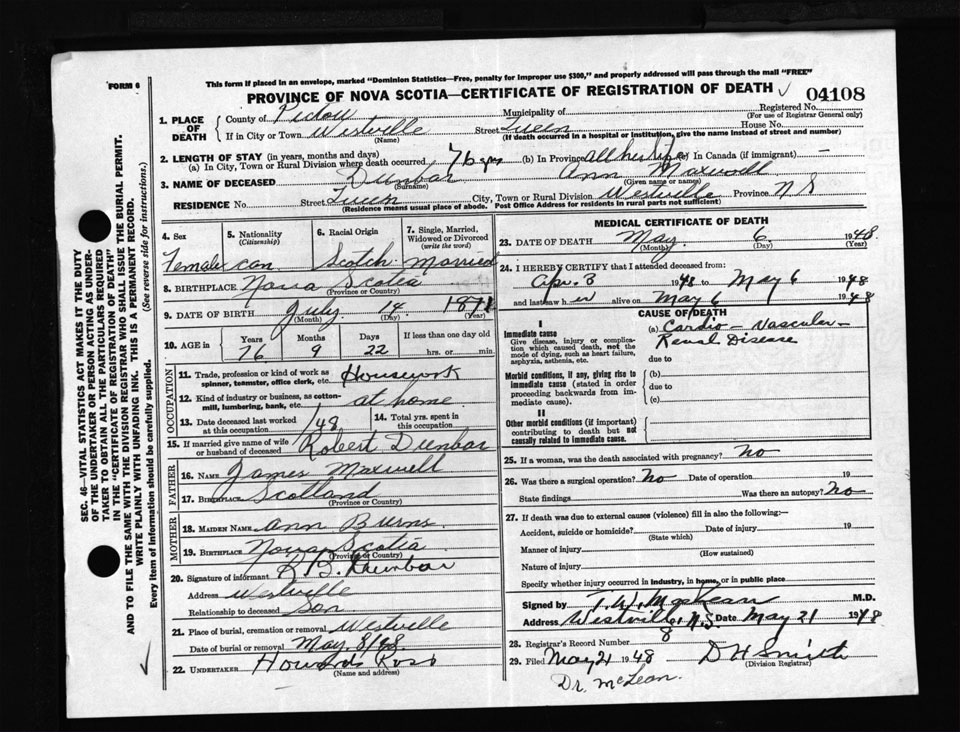 This form if placed in an envelope, marked "Dominion Statistics—Free, penalty for improper use $300," and properly addressed will pass through the mail "FREE"
FORM 6
PROVINCE OF NOVA SCOTIA—CERTIFICATE OF REGISTRATION OF DEATH
04108
1. PLACE OF DEATH
County of Pictou Municipality of Registered No.
(For use of Registrar General only)
If in City or Town Westville Street Queen House No.
(Name) (If death occurred in a hospital or institution, give the name instead of street and number)
2. LENGTH OF STAY (in years, months and days)
(a) In City, Town or Rural Division where death occurred 76 yrs (b) In Province all her life (c) In Canada (if immigrant) —
3. NAME OF DECEASED Dunbar Ann Maxwell
(Surname) (Given name or names)
RESIDENCE No. Street Queen City, Town or Rural Division Westville Province N S
(Residence means usual place of abode. Post Office Address for residents in rural parts not sufficient)
4. Sex Female
5. Nationality (Citizenship) Can.
6. Racial Origin Scotch
7. Single, Married, Widowed or Divorced (write the word) Married
8. BIRTHPLACE Nova Scotia
(Province or Country)
9. DATE OF BIRTH July 14 1871
(Month) (Day) (Year)
10. AGE in Years Months Days If less than one day old
76 9 22 hrs. or min.
OCCUPATION
11. Trade, profession or kind of work as spinner, teamster, office clerk, etc. Housework
12. Kind of industry or business, as cotton-mill, lumbering, bank, etc. at home
13. Date deceased last worked at this occupation /48
14. Total yrs. spent in this occupation
15. If married give name of wife or husband of deceased Robert Dunbar
FATHER
16. NAME James Maxwell
17. BIRTHPLACE Scotland
(Province or Country)
MOTHER
18. MAIDEN NAME Ann Burns
19. BIRTHPLACE Nova Scotia
(Province or Country)
20. Signature of informant R B Dunbar
Address Westville
Relationship to deceased Son
21. Place of burial, cremation or removal Westville
Date of burial or removal May 8/48
22. UNDERTAKER Howards Ross
(Name and address)
MEDICAL CERTIFICATE OF DEATH
23. DATE OF DEATH May 6 1948
(Month) (Day) (Year)
24. I HEREBY CERTIFY that I attended deceased from:
Apr. 3 1948 to May 6 1948
and last saw h er alive on May 6 1948
CAUSE OF DEATH
I
Immediate cause
Give disease, injury or complication which caused death, not the mode of dying, such as heart failure, asphyxia, asthenia, etc.
(a) Cardio-Vascular-
Renal Disease
due to
Morbid conditions, if any, giving rise to immediate cause (stated in order proceeding backwards from immediate cause).
(b)
due to
(c)
II
Other morbid conditions (if important) contributing to death but not causally related to immediate cause.
25. If a woman, was the death associated with pregnancy? No
26. Was there a surgical operation? No Date of operation 19
State findings Was there an autopsy? No
27. If death was due to external causes (violence) fill in also the following:
Accident, suicide or homicide? Date of injury 19
(State which)
Manner of injury
(How sustained)
Nature of injury
Specify whether injury occurred in industry, in home, or in public place
Signed by T. W. MacLean M.D.
Address Westville, N.S. Date May 21 1948
28. Registrar's Record Number 8
29. Filed May 21 1948 D H Smith
(Division Registrar)
Dr. McLean.
SEC. 46—VITAL STATISTICS ACT MAKES IT THE DUTY
OF THE UNDERTAKER OR PERSON ACTING AS UNDER-
TAKER TO OBTAIN ALL THE PARTICULARS REQUIRED
IN THE "CERTIFICATE OF REGISTRATION OF DEATH"
AND TO FILE THE SAME WITH THE DIVISION REGISTRAR WHO SHALL ISSUE THE BURIAL PERMIT.
WRITE PLAINLY WITH UNFADING INK. THIS IS A PERMANENT RECORD.
Every item of information should be carefully supplied. (See reverse side for instructions.)